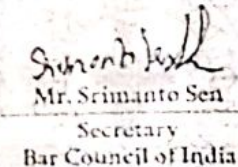 Mr. Srimanto Sen
Secretary
Bar Council of India